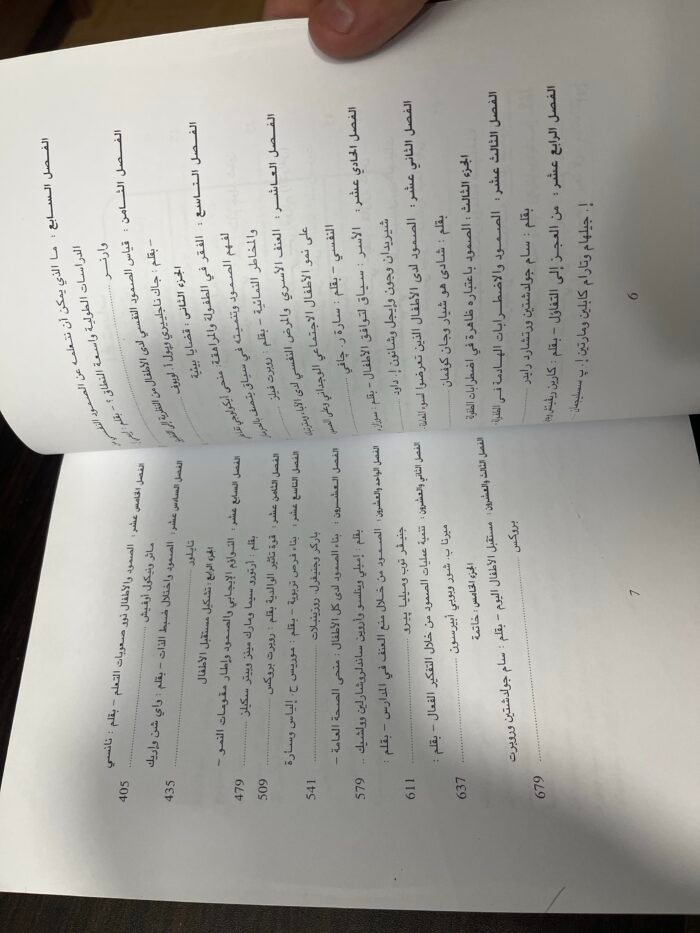 الفصل السابع : ما الذي يمكن أن نتعلمه عن الصمود النفسي
الدراسات الطولية واسعة النطاق ؟ - بقلم :
وارنر
الفصل الثامن : قياس الصمود النفسي لدى الأطفال من النظرية إلى
- بقلم : جاك ناجليري وبول أ. لوبوف
الجزء الثاني : قضايا بيئية
الفصل التاسع : الفقر في الطفولة والمراهقة: منحى أيكولوجي
لفهم الصمود وتنميته في سياق يتصف
والمخاطر النمائية - بقلم : روبرت فيلز
الفصل العاشر : العنف الأسري والمرض النفسي لدى الآباء
على نمو الأطفال الاجتماعي الوجداني وعلى
النفسي - بقلم : سارة ر. جافي
الفصل الحادي عشر : الأسر : سياق لتوافق الأطفال - بقلم : سوزان
شيريدان وجون وإيجل وشانون إ. داود
الفصل الثاني عشر : الصمود لدى الأطفال الذين تعرضوا لسوء
بقلم : شادي هوشيار وجان كوفمان
الجزء الثالث : الصمود باعتباره ظاهرة في اضطرابات الطفولة
الفصل الثالث عشر : الصمود والاضطرابات الهادمة في الطفولة
بقلم : سام جولدشتين ورتشارد رايدر
الفصل الرابع عشر : من العجز إلى التفاؤل - بقلم : كارين ريفيتش
إ. جيلهام وتارام كابلين ومارتين إ. ب سسليجمان
6
الفصل الخامس عشر : الصمود والأطفال ذوو صعوبات التعلم - بقلم : نانسي
ماثر ونيكول أوفيش ........ 405
الفصل السادس عشر : الصمود واختلال ضبط الذات - بقلم : واي شن وإريك
تايلور ........ 435
الجزء الرابع : تشكيل مستقبل الأطفال
الفصل السابع عشر : التواؤم الإيجابي والصمود وإطار مقومات النمو -
بقلم : أرتورو سيما ومارك مينز وبيتر سكيلز ... 479
الفصل الثامن عشر : قوة تأثير الوالدية بقلم : روبرت بروكس ... 509
الفصل التاسع عشر : بناء فرص تربوية - بقلم : موريس ج. إلياس وسارة
باركر وجنيفرل. روزنبلات ........ 541
الفصل العشرون : بناء الصمود لدى كل الأطفال : منحى الصحة العامة -
بقلم : إميلي وينسلو وأروين ساندلر وشارلين وولشيك .. 579
الفصل الواحد والعشرون : الصمود من خلال منع العنف في المدارس - بقلم :
جنيفر توب وميليا بييرو ........ 611
الفصل الثاني والعشرون : تنمية عمليات الصمود من خلال التفكير الفعال - بقلم :
ميرنا ب. شور وبوبي أبيرسون ........ 637
الجزء الخامس : خاتمة
الفصل الثالث والعشرون : مستقبل الأطفال اليوم - بقلم : سام جولدشتين وروبرت
بروكس ........ 679
7